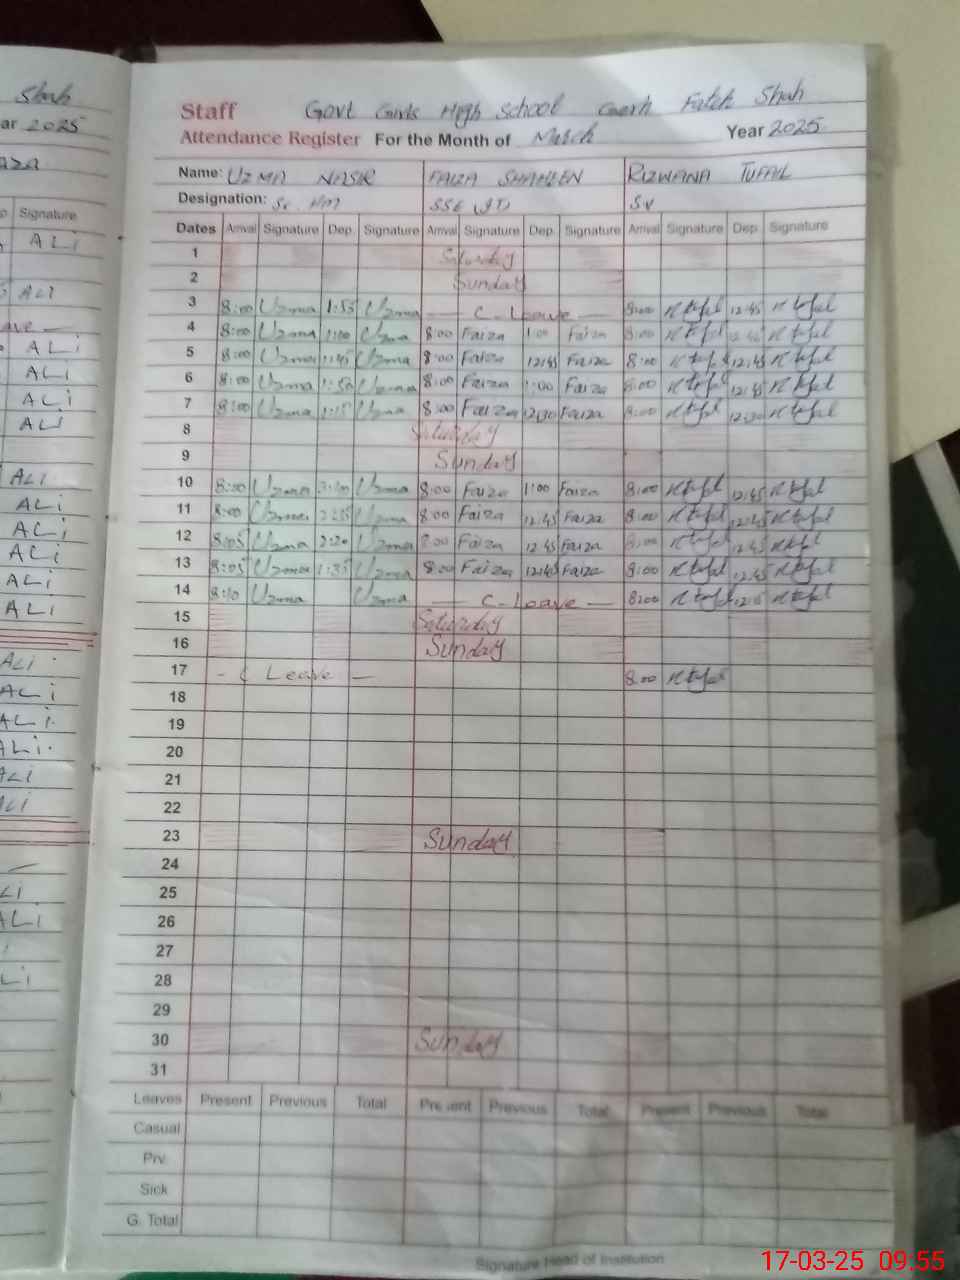 Shah
ar 2025
aza
Signature
ALi
ALi
ave —
ALi
ALi
ALi
ALi
ALi
ALi
ALi
ALi
ALi
ALi
ALi
ALi
ALi
ALi
ALi
ALi
Staff Govt Girls High School Fateh Shah
Attendance Register For the Month of March Year 2025
Name: UZMA NASIR FAIZA SHAHEEN RIZWANA TUFAIL
Designation: Sr. HM SSE
Dates Arrival Signature Dep. Signature Arrival Signature Dep. Signature Arrival Signature Dep. Signature
1 Saturday
2 Sunday
3 8:00 Uzma 1:55 Uzma — C-Leave — 8:00 12:45
4 8:00 Uzma 1:00 Uzma 8:00 Faiza 1:00 Faiza 8:00 12:45
5 8:00 Uzma 1:45 Uzma 8:00 Faiza 12:45 Faiza 8:00 12:45
6 8:00 Uzma 1:50 Uzma 8:00 Faiza 1:00 Faiza 8:00 12:45
7 8:00 Uzma 1:15 Uzma 8:00 Faiza 12:30 Faiza 8:00 12:30
8 Saturday
9 Sunday
10 8:00 Uzma Uzma 8:00 Faiza 1:00 Faiza 8:00 12:45
11 8:00 Uzma Uzma 8:00 Faiza 12:45 Faiza 8:00 12:45
12 8:05 Uzma 2:20 Uzma 8:00 Faiza 12:45 Faiza 8:00 12:45
13 8:05 Uzma 1:35 Uzma 8:00 Faiza 12:45 Faiza 8:00 12:45
14 8:10 Uzma Uzma — C-Leave — 8:00 12:15
15 Saturday
16 Sunday
17 - C Leave — 8:00
18
19
20
21
22
23 Sunday
24
25
26
27
28
29
30 Sunday
31
Leaves Present Previous Total Present Previous Total Present Previous Total
Casual
Prv.
Sick
G. Total
Signature Head of Institution
17-03-25 09:55